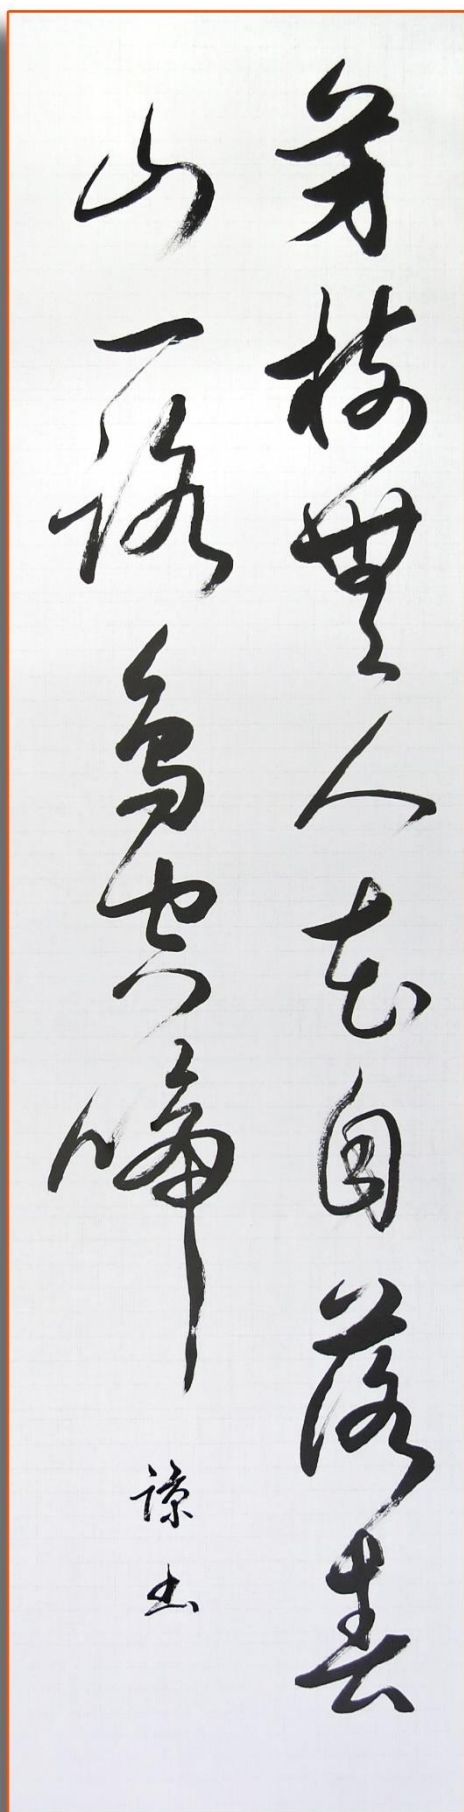 芳樹無人花自落春
山一路鳥空啼
諒書